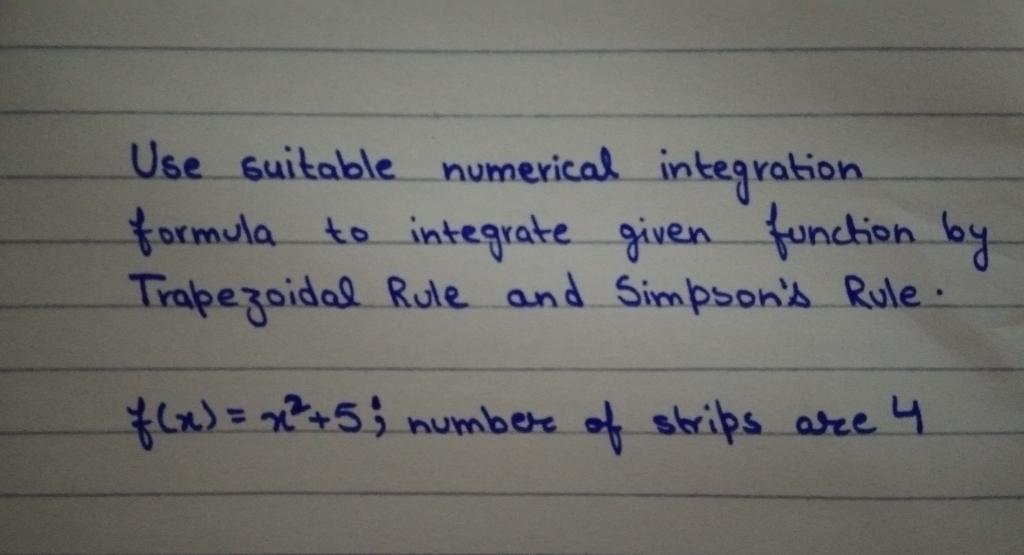 Use suitable numerical integration
formula to integrate given function by
Trapezoidal Rule and Simpson's Rule.
f(x) = x²+5; number of strips are 4